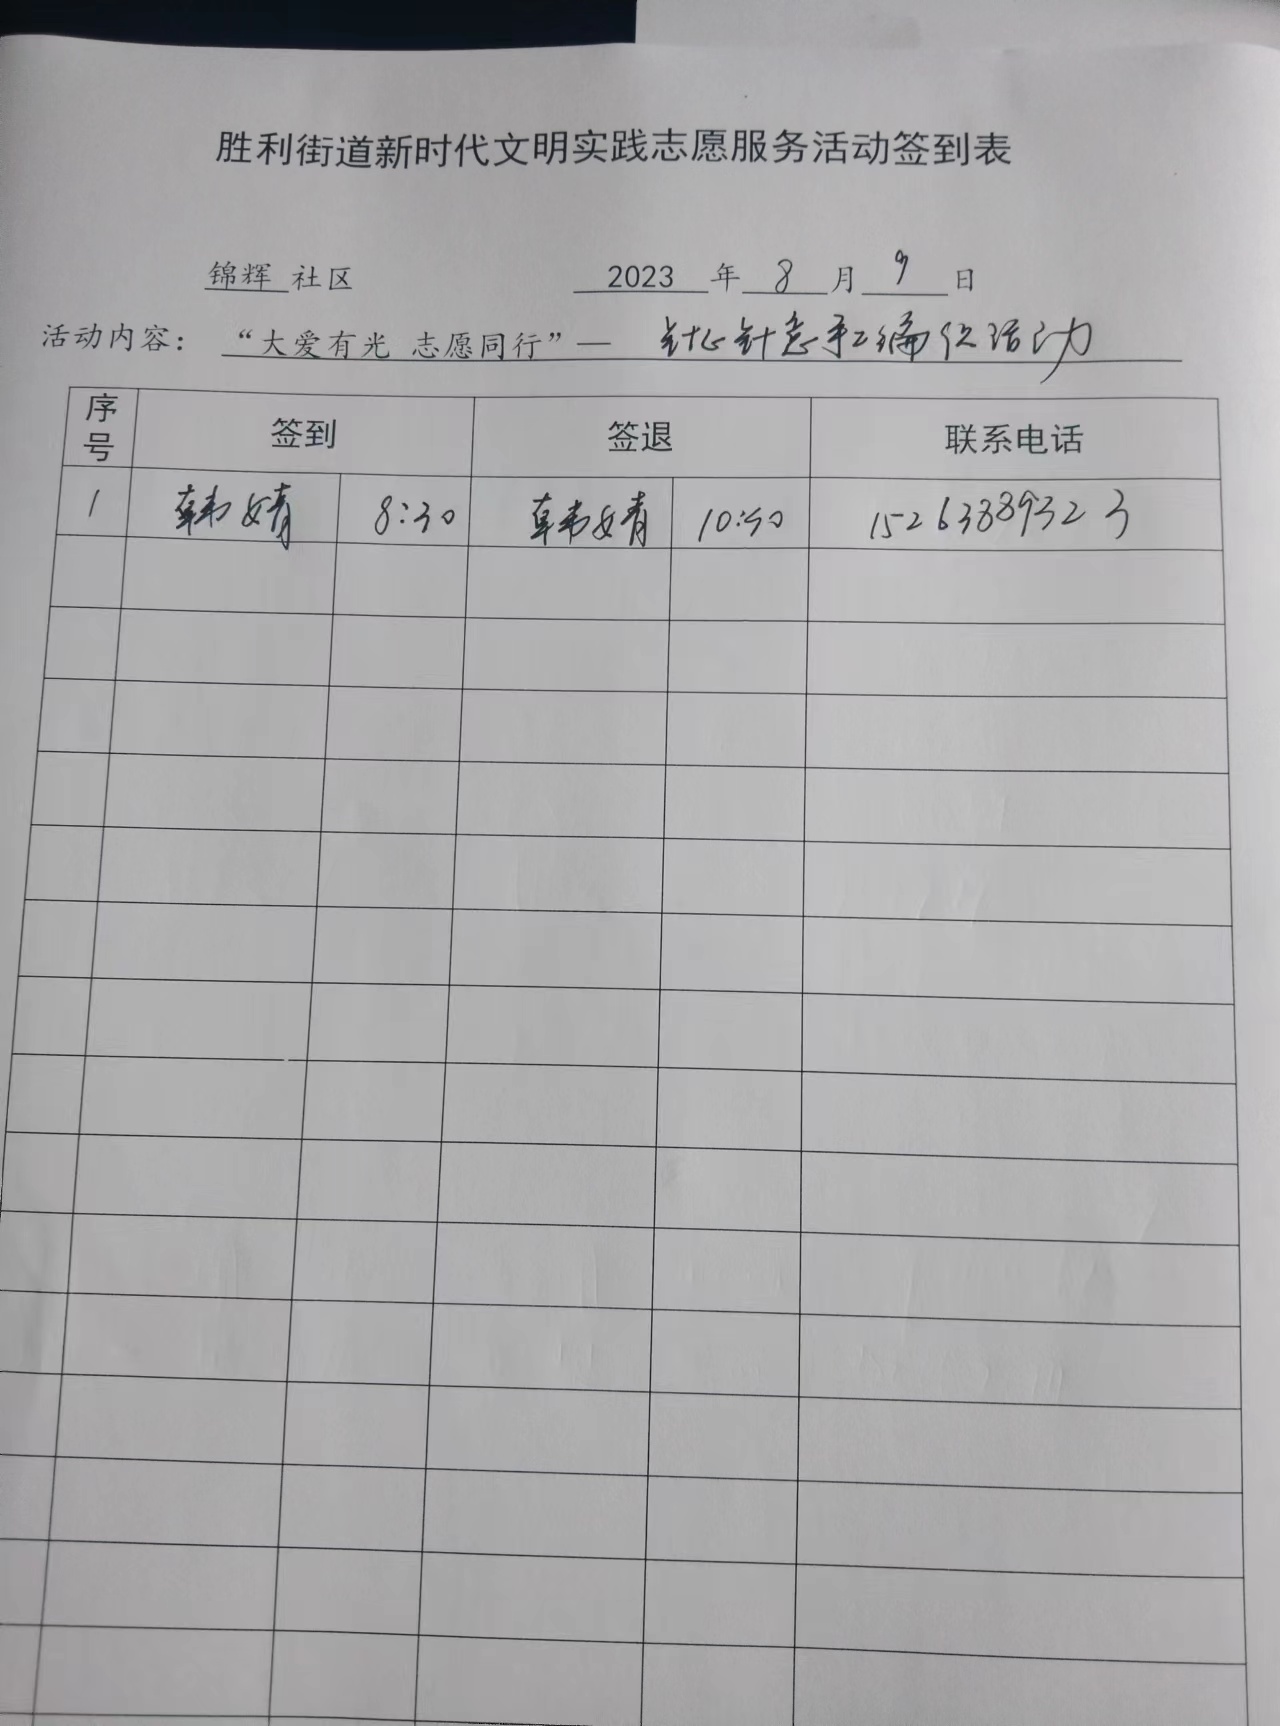 胜利街道新时代文明实践志愿服务活动签到表
锦辉 社区 2023 年 8 月 9 日
活动内容： “大爱有光 志愿同行”— 针心针意手工编织活动
序号 签到 签退 联系电话
1 韩婧 8:30 韩婧 10:30 15263389323